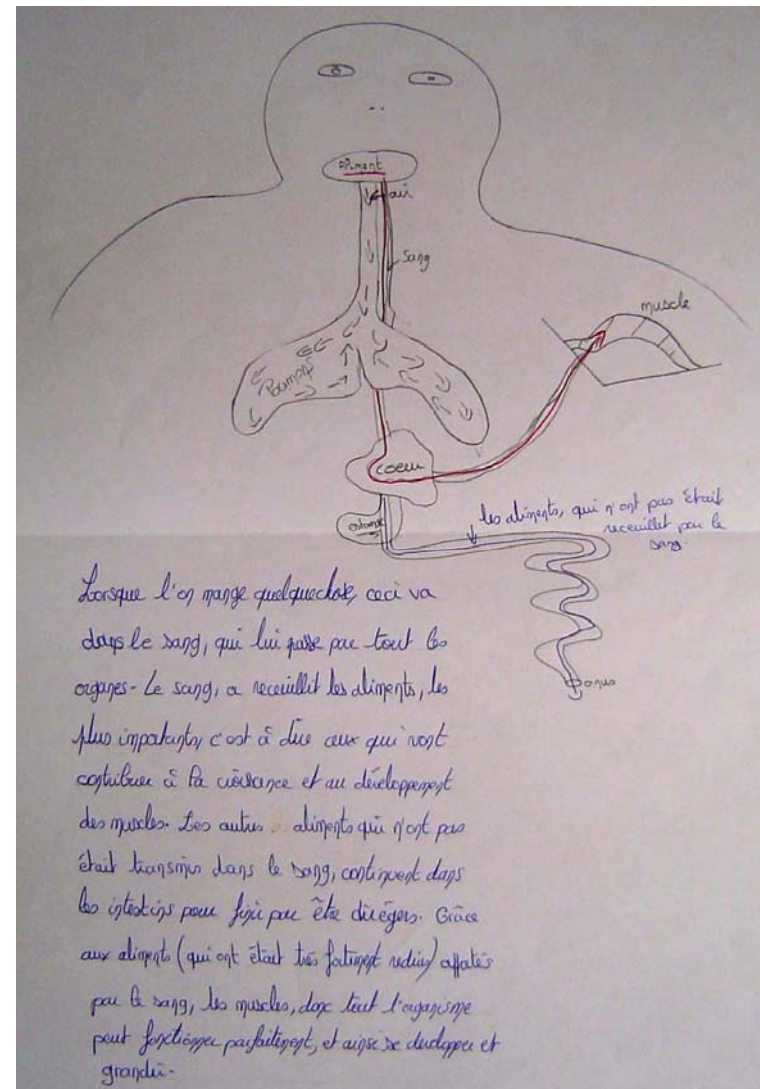 aliment
air
sang
muscle
Poumons
coeur
estomac
les aliments, qui n'ont pas était
receuillit par le
sang.
anus
Lorsque l'on mange quelquechose, ceci va
dans le sang, qui lui passe par tout les
organes. Le sang, a receuillit les aliments, les
plus importants, c'est à dire ceux qui vont
contribuer à la croissance et au développement
des muscles. Les autres aliments qui n'ont pas
était transmis dans le sang, continuent dans
les intestins pour finir par être dirégers. Grâce
aux aliments (qui ont était très fortement réduis)
par le sang, les muscles, donc tout l'organisme
peut fonctionner parfaitement, et ainsi se developper et
grandir.